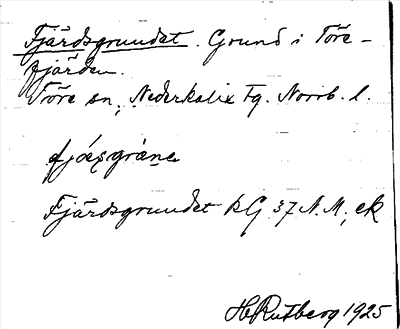 Fjärdsgrundet. Grund i Töre-
fjärden.
Töre sn, Nederkalix Fg. Norrb. l.
Fjärdsgrundet BG 37 N.M., ek
H Rutberg 1925